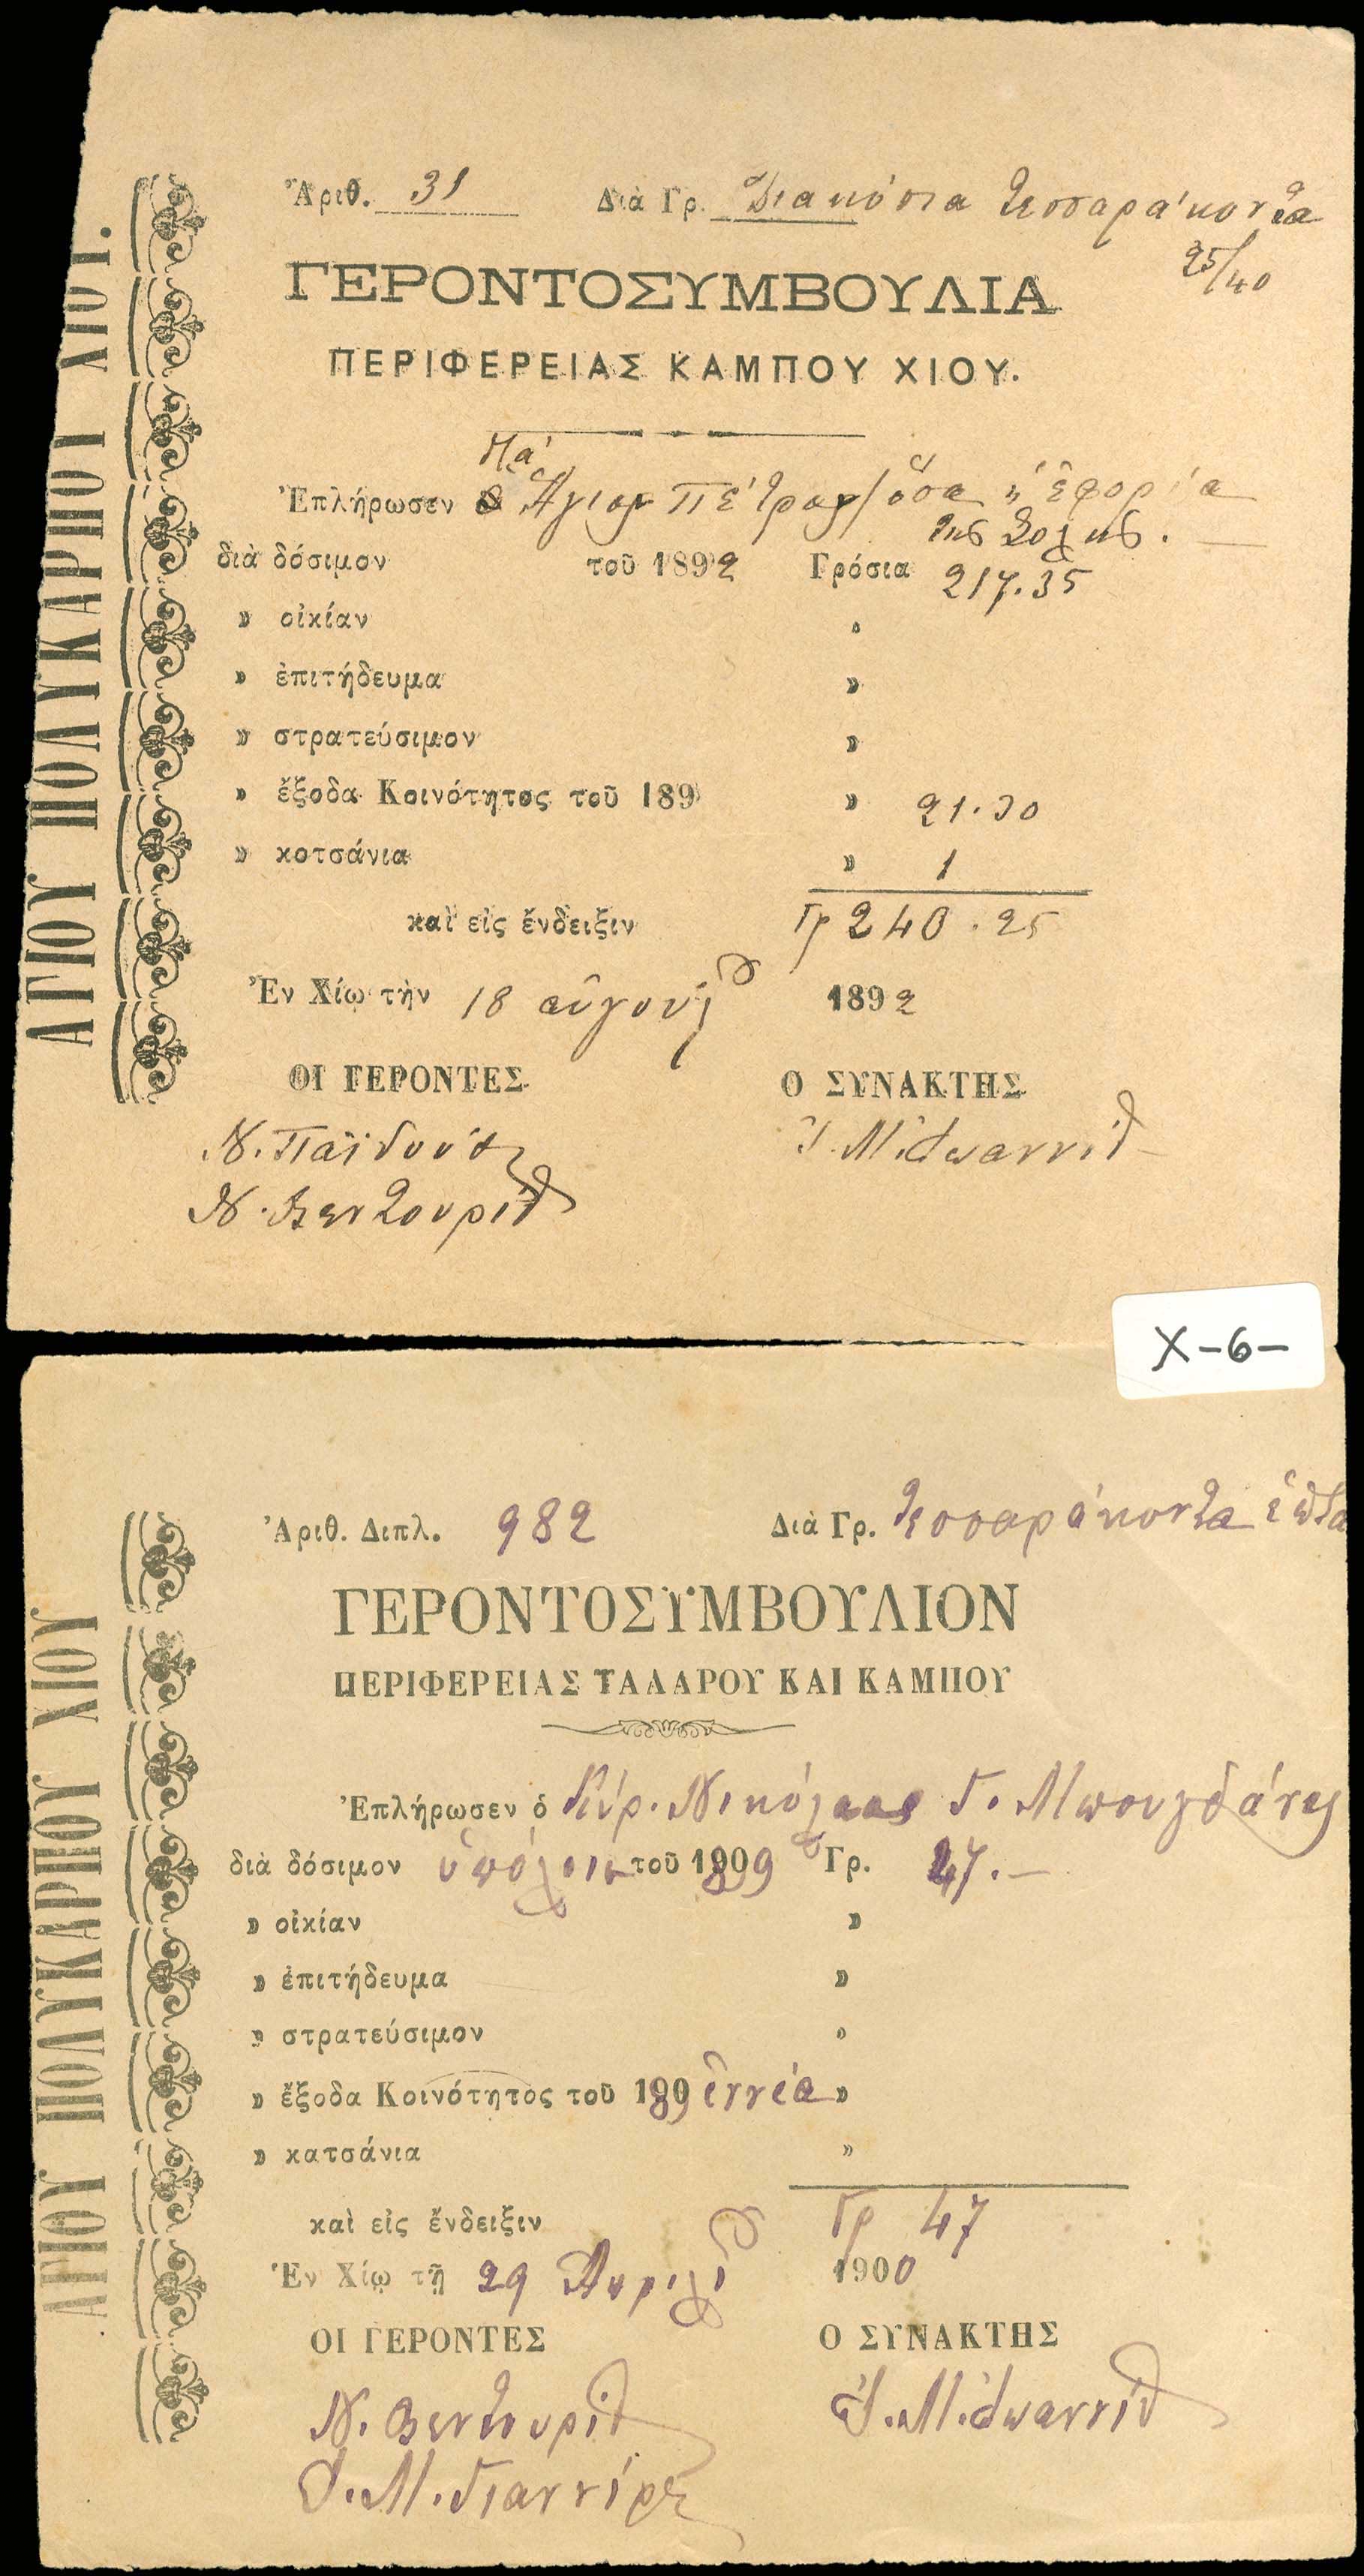 ΑΓΙΟΥ ΠΟΛΥΚΑΡΠΟΥ ΧΙΟΥ.
Ἀριθ. 31 Διὰ Γρ. Διακόσια τεσσαράκοντα
25/40
ΓΕΡΟΝΤΟΣΥΜΒΟΥΛΙΑ
ΠΕΡΙΦΕΡΕΙΑΣ ΚΑΜΠΟΥ ΧΙΟΥ.
Ἐπλήρωσεν Ἅγιος Πέτρος ἐφορία
διὰ δόσιμον τοῦ 1892 Γρόσια 217.35
» οἰκίαν »
» ἐπιτήδευμα »
» στρατεύσιμον »
» ἔξοδα Κοινότητος τοῦ 189 » 21.30
» κοτσάνια » 1
καὶ εἰς ἔνδειξιν Γρ 240.25
Ἐν Χίῳ τὴν 18 αὐγούσ 1892
ΟΙ ΓΕΡΟΝΤΕΣ Ο ΣΥΝΑΚΤΗΣ
Ν. Βεντούρης
X-6-
ΑΓΙΟΥ ΠΟΛΥΚΑΡΠΟΥ ΧΙΟΥ
Ἀριθ. Διπλ. 982 Διὰ Γρ. τεσσαράκοντα ἑπτα
ΓΕΡΟΝΤΟΣΥΜΒΟΥΛΙΟΝ
ΠΕΡΙΦΕΡΕΙΑΣ ΤΑΛΑΡΟΥ ΚΑΙ ΚΑΜΠΟΥ
Ἐπλήρωσεν ὁ Κύρ. Νικόλαος Γ. Μπουγδάνος
διὰ δόσιμον ὑπόλοιπ τοῦ 1899 Γρ. 47.-
» οἰκίαν »
» ἐπιτήδευμα »
» στρατεύσιμον »
» ἔξοδα Κοινότητος τοῦ 189 ἐννέα »
» κατσάνια »
καὶ εἰς ἔνδειξιν Γρ 47
Ἐν Χίῳ τῇ 29 Ἀπριλί 1900
ΟΙ ΓΕΡΟΝΤΕΣ Ο ΣΥΝΑΚΤΗΣ
Ν. Βεντούρης